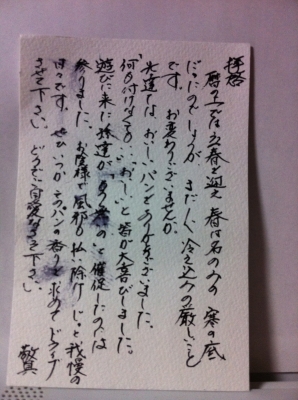 拝啓
暦の上では立春を迎え 春は名のみの 寒の底
だったのでしょうが まだまだ 冷え込みの厳しいこと
です。お変わりございませんか。
先達ては、おいしいパンをありがとうございました。
何も付けなくても、おいしいと皆が大喜びしました。
遊びに来た孫達が、もう無いのと催促したのには
参りました。お陰様で風邪も払い除け
日々です。ぜひいつかこのパンの香りを求めてドライブ
させて下さい。どうぞご自愛なさって下さい。
敬具